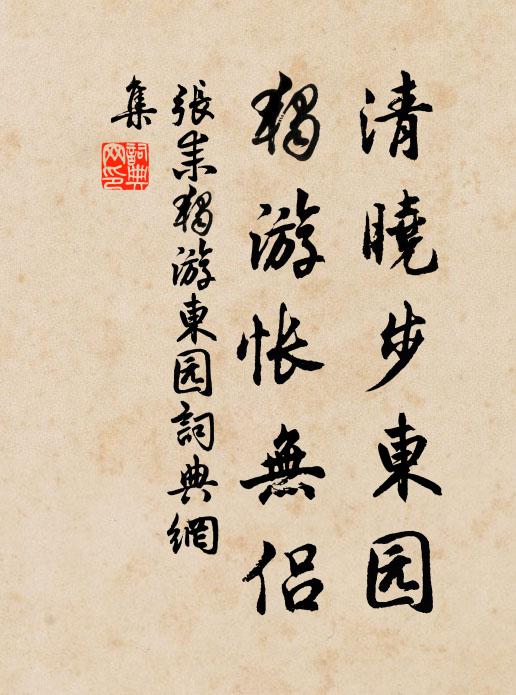 清曉步東园
獨游怅無侣
張耒獨游東园詞典網
集
詞典
网印